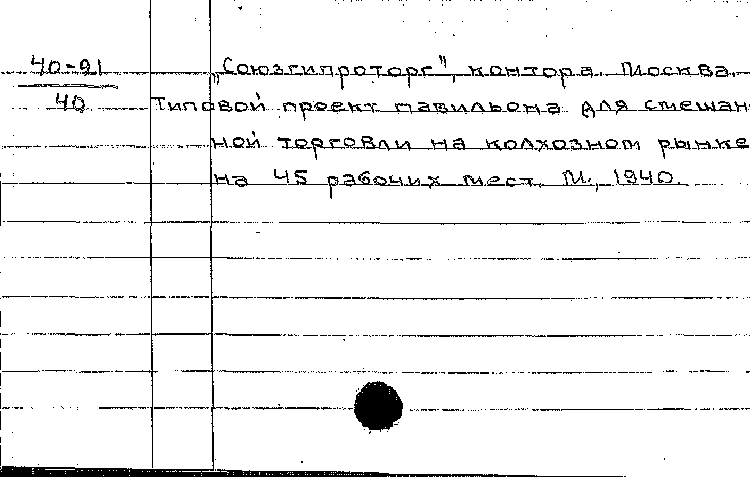 40-91
40
„Союзгипроторг", контора. Москва.
Типовой проект павильона для смешан-
ной торговли на колхозном рынке
на 45 рабочих мест. М., 1940.